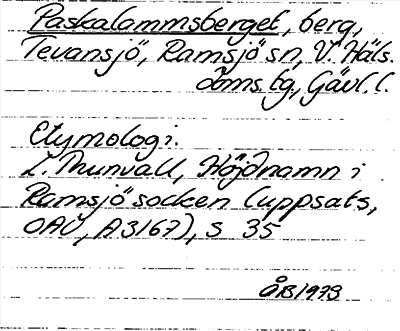 Paskalammsberget, berg,
Tevansjö, Ramsjö sn, V. Häls.
doms. tg, Gävl. l.
Etymologi.
L. Thunvall, Höjdnamn i
Ramsjö socken (uppsats,
OAU, A3167), s 35
ÅB1978